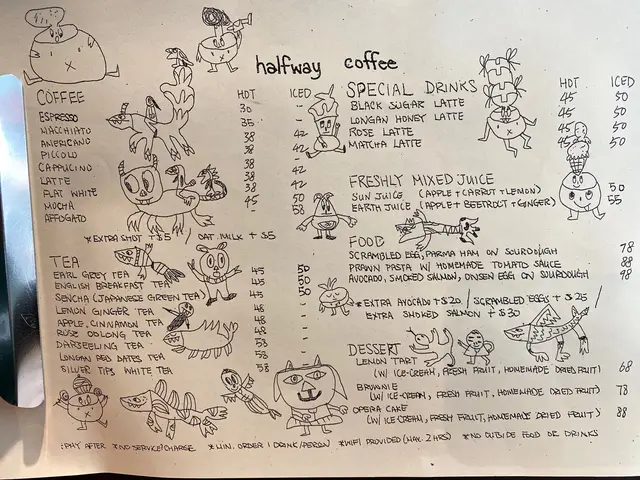 halfway coffee
COFFEE HOT ICED
ESPRESSO 30 -
MACCHIATO 35 -
AMERICANO 38 42
PICCOLO 38 -
CAPPUCINO 38
LATTE 38 42
FLAT WHITE 38 42
MOCHA 45 50
AFFOGATO - 58
*EXTRA SHOT +$5 / OAT MILK + $5
TEA
EARL GREY TEA 45 50
ENGLISH BREAKFAST TEA 45 50
SENCHA (JAPANESE GREEN TEA) 45 50
LEMON GINGER TEA 48 -
APPLE, CINNAMON TEA 48 -
ROSE OOLONG TEA 48 -
DARJEELING TEA 53 -
LONGAN RED DATES TEA 53 -
SILVER TIPS WHITE TEA 58 -
SPECIAL DRINKS HOT ICED
BLACK SUGAR LATTE 45 50
LONGAN HONEY LATTE 45 50
ROSE LATTE 45 50
MATCHA LATTE 45 50
FRESHLY MIXED JUICE
SUN JUICE (APPLE + CARROT + LEMON) 50
EARTH JUICE (APPLE + BEETROOT + GINGER) 55
FOOD
SCRAMBLED EGG, PARMA HAM ON SOURDOUGH 78
PRAWN PASTA W/ HOMEMADE TOMATO SAUCE 88
AVOCADO, SMOKED SALMON, ONSEN EGG ON SOURDOUGH 98
*EXTRA AVOCADO +$20 / SCRAMBLED EGGS + $25 /
EXTRA SMOKED SALMON + $30
DESSERT
LEMON TART
(W/ ICE-CREAM, FRESH FRUIT, HOMEMADE DRIED FRUIT) 68
BROWNIE
(W/ ICE-CREAM, FRESH FRUIT, HOMEMADE DRIED FRUIT) 78
OPERA CAKE
(W/ ICE-CREAM, FRESH FRUIT, HOMEMADE DRIED FRUIT) 88
*PAY AFTER *NO SERVICE CHARGE *MIN. ORDER 1 DRINK/PERSON *WIFI PROVIDED (MAX. 2 HRS) *NO OUTSIDE FOOD OR DRINKS